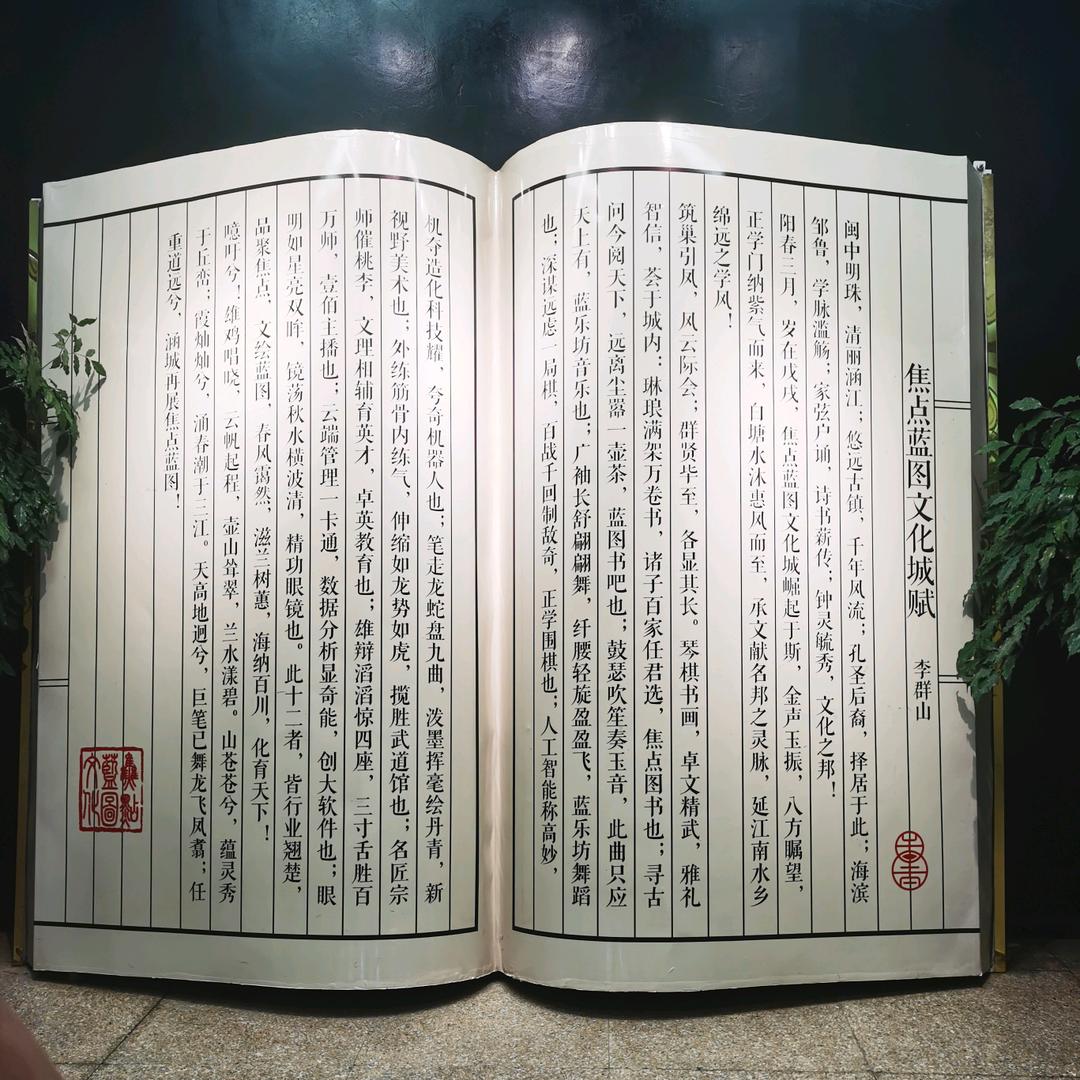 焦点蓝图文化城赋
李群山
闽中明珠，清丽涵江；悠远古镇，千年风流；孔圣后裔，择居于此；海滨
邹鲁，学脉滥觞；家弦户诵，诗书薪传；钟灵毓秀，文化之邦！
阳春三月，岁在戊戌，焦点蓝图文化城崛起于斯，金声玉振，八方瞩望，
正学门纳紫气而来，白塘水沐惠风而至，承文献名邦之灵脉，延江南水乡
绵远之学风！
筑巢引凤，风云际会；群贤毕至，各显其长。琴棋书画，卓文精武，雅礼
智信，荟于城内：琳琅满架万卷书，诸子百家任君选，焦点图书也；寻古
问今阅天下，远离尘嚣一壶茶，蓝图书吧也；鼓瑟吹笙奏玉音，此曲只应
天上有，蓝乐坊音乐也；广袖长舒翩翩舞，纤腰轻旋盈盈飞，蓝乐坊舞蹈
也；深谋远虑一局棋，百战千回制敌奇，正学围棋也；人工智能称高妙，
机夺造化科技耀，夸奇机器人也；笔走龙蛇盘九曲，泼墨挥毫绘丹青，新
视野美术也；外练筋骨内练气，伸缩如龙势如虎，揽胜武道馆也；名匠宗
师催桃李，文理相辅育英才，卓英教育也；雄辩滔滔惊四座，三寸舌胜百
万师，壹佰主播也；云端管理一卡通，数据分析显奇能，创大软件也；眼
明如星亮双眸，镜荡秋水横波清，精功眼镜也。此十二者，皆行业翘楚，
品聚焦点，文绘蓝图，春风霭然，滋兰树蕙，海纳百川，化育天下！
噫吁兮！雄鸡唱晓，云帆起程，壶山耸翠，兰水漾碧。山苍苍兮，蕴灵秀
于丘峦；霞灿灿兮，涌春潮于三江。天高地迥兮，巨笔已舞龙飞凤翥；任
重道远兮，涵城再展焦点蓝图！
焦點
藍圖
文化